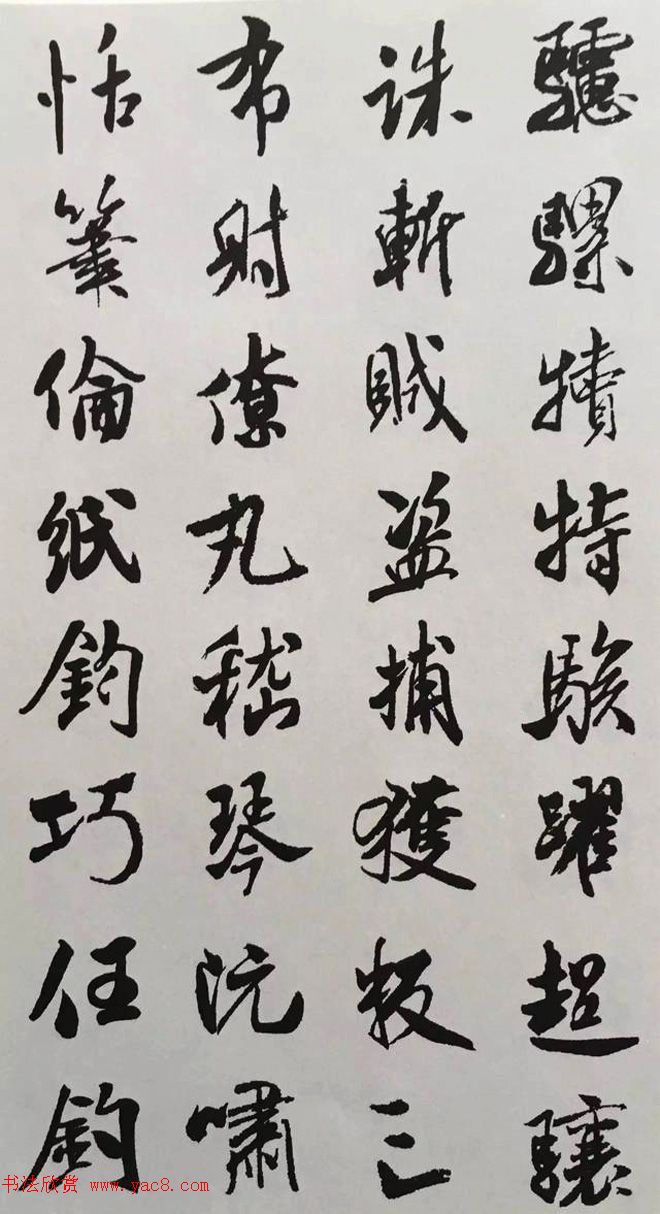 驢騾犢特駭躍超驤
誅斬賊盜捕獲叛亡
布射僚丸嵇琴阮嘯
恬筆倫紙鈞巧任釣
书法欣赏 www.yac8.com